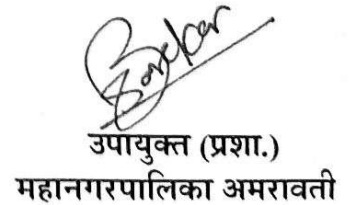 उपायुक्त (प्रशा.)
महानगरपालिका अमरावती